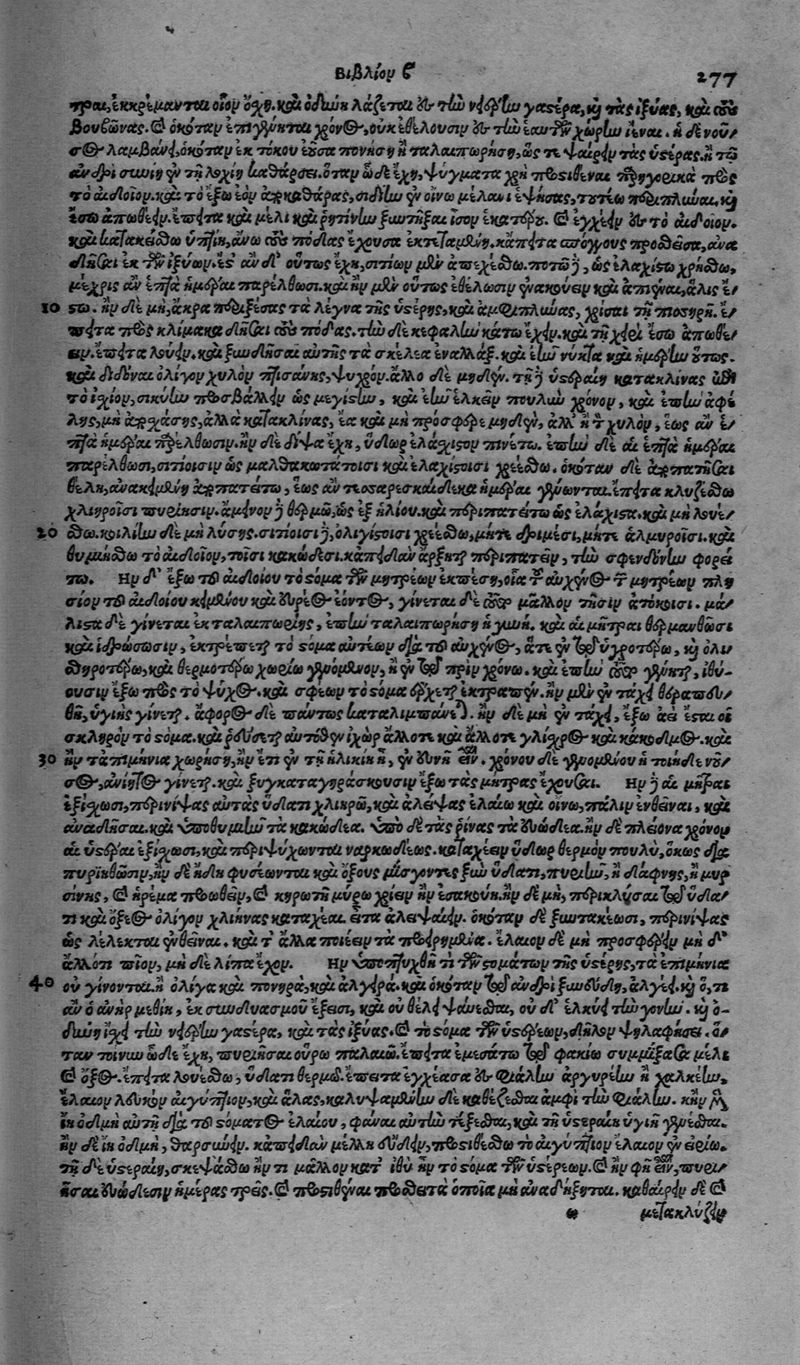 Βιβλίον ϛ 277
τραι, ἐκκρέμανται οἷον ὄχη. καὶ ὀδύνη λάζεται ἐς τὴν νείερην γαστέρα, καὶ τὰς ἰξύας, καὶ τοὺς
βουβῶνας. καὶ ὁκόταν ἐπιγένηται χρόνος, οὐκ ἐθέλουσιν ἐς τὴν ἑαυτῶν χώρην ἰέναι. ἡ δὲ νοῦ/
σος λαμβάνει, ὁκόταν ἐκ τόκου ἐοῦσα πονήσῃ ἢ ταλαιπωρήσῃ, ὥς τι ψαίρειν τὰς ὑστέρας. ἢ τῷ
ἀνδρὶ συνίῃ ἐν τῇ λοχίῃ καθάρσει. ὅταν ὧδε ἔχῃ, ψύγματα χρὴ προστιθέναι πρὸς
τὸ αἰδοῖον. καὶ τὸ ἔξω ἐὸν ἀποκαθάρας, σίδην ἐν οἴνῳ μέλανι ἑψήσας, τουτέῳ περιπλῦναι, καὶ
ἔσω ἀπωθέειν. ἔπειτα καὶ μέλι καὶ ῥητίνην ξυντῆξαι ἴσον ἑκατέρου. καὶ ἐγχέειν ἐς τὸ αἰδοῖον.
καὶ κατακείσθω ὑπτίη, ἄνω τοὺς πόδας ἔχουσα ἐκτεταμένη. κἄπειτα σπόγγους προσθεῖσα, ἀνα
δῆσαι ἐκ τῶν ἰξύων. ἔστ' ἂν δ' οὕτως ἔχῃ, σιτίων μὲν ἀπεχέσθω. ποτῷ δὲ, ὡς ἐλαχίστῳ χρήσθω,
μέχρις ἂν ἑπτὰ ἡμέραι παρέλθωσι. καὶ ἢν μὲν οὕτως ἐθέλωσιν ἐνακούειν καὶ ἀπιέναι, ἅλις ἔ/
10 στω. ἢν δὲ μὴ, ἄκρα περιξέσας τὰ λέγνα τῆς ὑστέρης, καὶ ἀμφιπλύνας, χρῖσαι τῇ πισσηρῇ. ἔ/
πειτα πρὸς κλίμακα δῆσαι τοὺς πόδας. τὴν δὲ κεφαλὴν κάτω ἔχειν. καὶ τῇ χειρὶ ἔσω ἀπωθέ/
ειν. ἔπειτα λούειν. καὶ ξυνδῆσαι αὐτῆς τὰ σκέλεα ἐναλλάξ. καὶ ἐᾶν νύκτα καὶ ἡμέρην οὕτως.
καὶ διδόναι ὀλίγον χυλὸν πτισάνης, ψυχρόν. ἄλλο δὲ μηδέν. τῇ δὲ ὑστεραίῃ κατακλίνας ἐπὶ
τὸ ἰσχίον, σικύην προσβάλλειν ὡς μεγίστην, καὶ ἐᾶν ἕλκειν πουλὺν χρόνον, καὶ ἐπὴν ἀφέ
λῃς, μὴ ἀποσχάσῃς, ἀλλὰ κατακλίνας, ἔα καὶ μὴ πρόσφερε μηδέν, ἀλλ' ἢ τὸν χυλὸν, ἕως ἂν ἑ/
πτὰ ἡμέραι παρέλθωσιν. ἢν δὲ δίψα ἔχῃ, ὕδωρ ἐλάχιστον πινέτω. ἐπὴν δὲ αἱ ἑπτὰ ἡμέραι
παρέλθωσι, σιτίοισιν ὡς μαλθακωτάτοισι καὶ ἐλαχίστοισι χρεέσθω. ὁκόταν δὲ ἀποπατῆσαι
θέλῃ, ἀνακειμένη ἀποπατείτω, ἕως ἂν τεσσαρεσκαίδεκα ἡμέραι γένωνται. ἔπειτα κλυζέσθω
χλιηροῖσι πυρίησιν. ἄμεινον δὲ θερμῷ, ὡς ἐξ ἡλίου. καὶ περιπατείτω ὡς ἐλάχιστα. καὶ μὴ λουέ/
20 σθω. κοιλίην δὲ μὴ λύσῃς. σιτίοισι δὲ, ὀλιγίστοισι χρεέσθω, μήτε δριμέσι, μήτε ἁλμυροῖσι. καὶ
θυμιήσθω τὸ αἰδοῖον, τοῖσι κακώδεσι. κἀπειδὰν ἄρξηται περιπατεῖν, τὴν σφενδόνην φορεί
τω. Ἢν δ' ἔξω τοῦ αἰδοίου τὸ στόμα τῶν μητρέων ἐκπέσῃ, οἷα τοῦ αὐχένος τῶν μητρέων πλη
σίον τοῦ αἰδοίου κειμένου καὶ εὐρέος ἐόντος, γίνεται δὲ τοῦτο μᾶλλον τῇσιν ἀτόκοισι. μά/
λιστα δὲ γίνεται ἐκ ταλαιπωρίης, ἐπὴν ταλαιπωρήσῃ ἡ γυνὴ. καὶ αἱ μῆτραι θερμανθῶσι
καὶ ἱδρώσωσιν, ἐκτρέπεται τὸ στόμα αὐτέων διὰ τοῦ αὐχένος, ἅτε ἐν τῷ ὑγροτέρῳ, καὶ ὀλι
σθηροτέρῳ, καὶ θερμοτέρῳ χωρίῳ γενόμενον, ἢ ἐν τῷ πρὶν χρόνῳ. καὶ ἐπὴν τοῦτο γένηται, ἰθύ/
ουσιν ἔξω πρὸς τὸ ψύχος. καὶ σφέων τὸ στόμα ἔρχεται ἐκτραπέν. ἢν μὲν ἐν τάχει θεραπευ/
θῇ, ὑγιὴς γίνεται. ἄφορος δὲ πάντως καταλιμπάνεται. ἢν δὲ μὴ ἐν τάχει, ἔξω αἰεὶ ἔσται οἱ
σκληρὸν τὸ στόμα. καὶ ῥεύσεται αὐτόθεν ἰχὼρ ἄλλοτε καὶ ἄλλοτε γλίσχρος καὶ κάκοδμος. καὶ
30 ἢν τὰ ἐπιμήνια χωρήσῃ, ἢν ἔτι ἐν τῇ ἡλικίῃ ᾖ, ἐν δύνῃ εἶεν. χρόνου δὲ γενομένου ἢ τοιήδε νοῦ/
σος, ἀνίητος γίνεται. καὶ ξυγκαταγηράσκουσιν ἔξω τὰς μήτρας ἔχουσαι. Ἢν δὲ αἱ μῆτραι
ἐξίσχωσι, περινίψας αὐτὰς ὕδατι χλιηρῷ, καὶ ἀλείψας ἐλαίῳ καὶ οἴνῳ, πάλιν ἐνθεῖναι, καὶ
ἀναδῆσαι. καὶ ὑποθυμιῆν τὰ κακώδεα. ὑπὸ δὲ τὰς ῥῖνας τὰ εὐώδεα. ἢν δὲ πλείονα χρόνον
αἱ ὑστέραι ἐξίσχωσι, καὶ περιψύχωνται ναρκώδεως. καταχέειν ὕδωρ θερμὸν πουλὺ, ὅκως δια
πυριηθῶσιν, ἢν δὲ ἤδη φυσέωνται καὶ ὄξους μίσγοντες ξὺν ὕδατι, πυριῆν, ἢ δάφνης, ἢ μυρ
σίνης, καὶ ἠρέμα προωθεῖν, καὶ κηρωτῇ μύρῳ χρίειν ἢν ἐσακούῃ. ἢν δὲ μὴ, περικλύσαι τῷ ὕδα/
τι καὶ ὄξεος ὀλίγον χλιήνας καταχέαι. εἶτα ἀλείψαι. ὁκόταν δὲ ξυντακέωσι, περινίψας
ὡς λέλεκται ἐνθεῖναι. καὶ τ' ἄλλα ποιέειν τὰ προειρημένα. ἔλαιον δὲ μὴ προσφέρειν μὴ δ'
ἄλλό τι πῖον, μὴ δὲ λίπα ἔχον. Ἢν ὑποπτυχθῇ τι τῶν στομάτων τῆς ὑστέρης, τὰ ἐπιμήνια
40 οὐ γίνονται. ἢ ὀλίγα καὶ πονηρὰ, καὶ ἀλγεινά. καὶ ὁκόταν τῷ ἀνδρὶ ξυνεύδῃ, ἀλγέει. καὶ ὅ, τι
ἂν ὁ ἀνὴρ μεθίῃ, ἐκ συνδυασμοῦ ἔξεισι, καὶ οὐ θέλει ψαύεσθαι, οὐ δ' ἕλκει τὴν γονήν. καὶ ὀ-
δύνη ἴσχει τὴν νείερην γαστέρα, καὶ τὰς ἰξύας. καὶ τὸ στόμα τῶν ὑστέρων, δῆλον ψηλαφήσει. ὅ/
ταν τοίνυν ὧδε ἔχῃ, πυριῆσαι οὔρῳ παλαιῷ. ἔπειτα ἐμεσάτω τῷ φακίῳ συμμίξασα μέλι
καὶ ὄξος. ἔπειτα λουέσθω, ὕδατι θερμῷ. ἔπειτα ἐγχέασα ἐς φιάλην ἀργυρέην ἢ χαλκέην.
ἔλαιον λευκὸν αἰγύπτιον, καὶ ἅλας, καλυψαμένην δὲ καθέζεσθαι ἀμφὶ τὴν φιάλην. κἢν μὲν
ἴῃ ὀδμὴ αὐτῇ διὰ τοῦ στόματος ἐλαίου, φάναι αὐτὴν τέξεσθαι, καὶ τῇ ὑστεραίῃ ὑγιῆ γενέσθαι.
ἢν δὲ ἴῃ ὀδμὴ, θαρσύνειν. κἀπειδὰν μέλλῃ εὕδειν, προστιθέσθω τὸ αἰγύπτιον ἔλαιον ἐν εἰρίῳ.
τῇ δὲ ὑστεραίῃ, σκεψάσθω ἤν τι μᾶλλον κατ' ἰθὺ ᾖν τὸ στόμα τῶν ὑστέρεων. καὶ ἢν φῇ εἶναι, πυρι/
ῆσαι εὐώδεσιν ἡμέρας τρεῖς. καὶ προστιθέναι πρόσθετα ὁποῖα μὴ ἀναδήξηται. καθαίρειν δὲ καὶ
μετακλύζειν